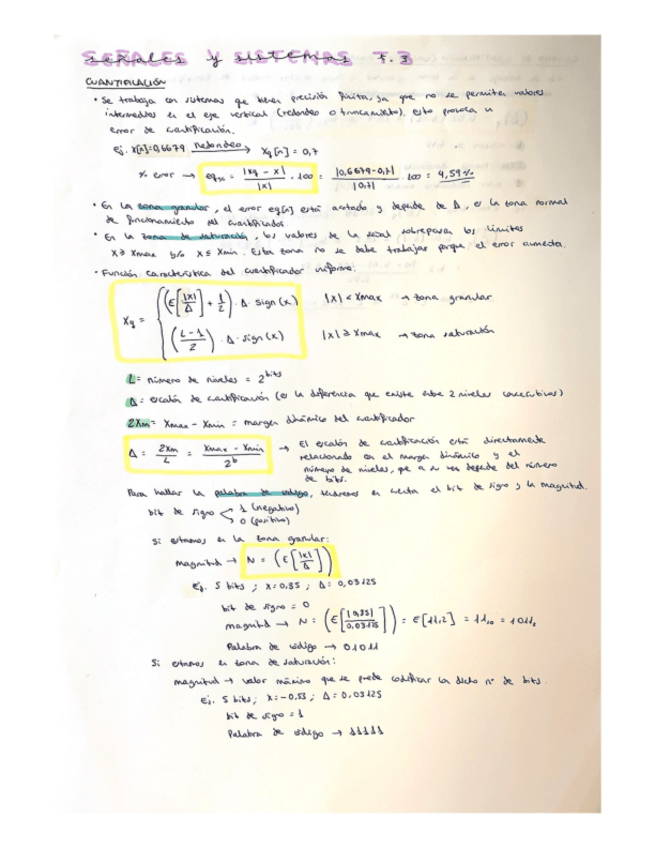 SEÑALES Y SISTEMAS T.3
CUANTIFICACIÓN
• Se trabaja con sistemas que tienen precisión finita, ya que no se permiten valores
intermedios en el eje vertical (redondeo o truncamiento). Esto provoca un
error de cuantificación.
ej. x[n]=0,6679 Redondeo → Xq[n] = 0,7
% error → eq% = |xq - x| / |x| · 100 = |0,6679-0,7| / |0,7| · 100 = 4,59%
• En la zona granular, el error eq[n] está acotado y depende de Δ, es la zona normal
de funcionamiento del cuantificador.
• En la zona de saturación, los valores de la señal sobrepasan los límites
X ≥ Xmax y/o X ≤ Xmin. Esta zona no se debe trabajar porque el error aumenta.
• Función característica del cuantificador uniforme:
Xq = { (E[|x|/Δ] + 1/2) · Δ · sign(x) |x| < Xmax → zona granular
((L-1)/2) · Δ · sign(x) |x| ≥ Xmax → zona saturación
L = número de niveles = 2^bits
Δ = escalón de cuantificación (es la diferencia que existe entre 2 niveles consecutivos)
2Xm = Xmax - Xmin = margen dinámico del cuantificador
Δ = 2Xm / L = (Xmax - Xmin) / 2^b → El escalón de cuantificación está directamente
relacionado con el margen dinámico y el
número de niveles, que a su vez depende del número
de bits.
Para hallar la palabra de código, tendremos en cuenta el bit de signo y la magnitud.
bit de signo < 1 (negativo)
0 (positivo)
Si estamos en la zona granular:
magnitud → N = (E[|x|/Δ])
Ej. 5 bits ; x=0,35 ; Δ= 0,03125
bit de signo = 0
magnitud → N = (E[|0,35|/0,03125]) = E[11,2] = 11₁₀ = 1011₂
Palabra de código → 01011
Si estamos en zona de saturación:
magnitud → valor máximo que se puede codificar con dicho nº de bits.
Ej. 5 bits; x=-0,53 ; Δ=0,03125
bit de signo = 1
Palabra de código → 11111